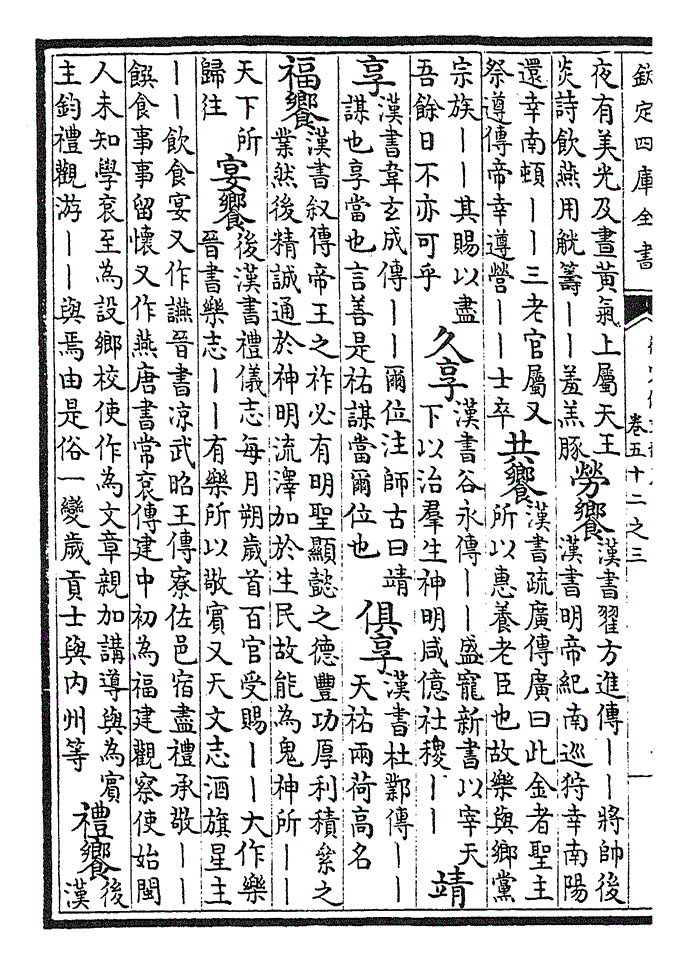 欽定四庫全書
卷五十二之三
夜有美光及晝黃氣上屬天王
炎詩飲燕用觥籌丨丨羞羔豚
勞饗
漢書翟方進傳丨丨將帥後
漢書明帝紀南巡狩幸南陽
還幸南頓丨丨三老官屬又
祭遵傳帝幸遵營丨丨士卒
共饗
漢書疏廣傳廣曰此金者聖主
所以惠養老臣也故樂與鄉黨
宗族丨丨其賜以盡
吾餘日不亦可乎
久享
漢書谷永傳丨丨盛寵新書以宰天
下以治羣生神明咸億社稷丨丨
靖
享
漢書韋玄成傳丨丨爾位注師古曰靖
謀也享當也言善是祐謀當爾位也
俱享
漢書杜鄴傳丨丨
天祐兩荷高名
福饗
漢書叙傳帝王之祚必有明聖顯懿之德豐功厚利積絫之
業然後精誠通於神明流澤加於生民故能為鬼神所丨丨
天下所
歸往
宴饗
後漢書禮儀志每月朔歲首百官受賜丨丨大作樂
晉書樂志丨丨有樂所以敬賓又天文志酒旗星主
丨丨飲食宴又作讌晉書凉武昭王傳寮佐邑宿盡禮承敬丨丨
饌食事事留懷又作燕唐書常衮傳建中初為福建觀察使始閩
人未知學衮至為設鄉校使作為文章親加講導與為賓
主鈞禮觀游丨丨與焉由是俗一變歲貢士與內州等
禮饗
後
漢